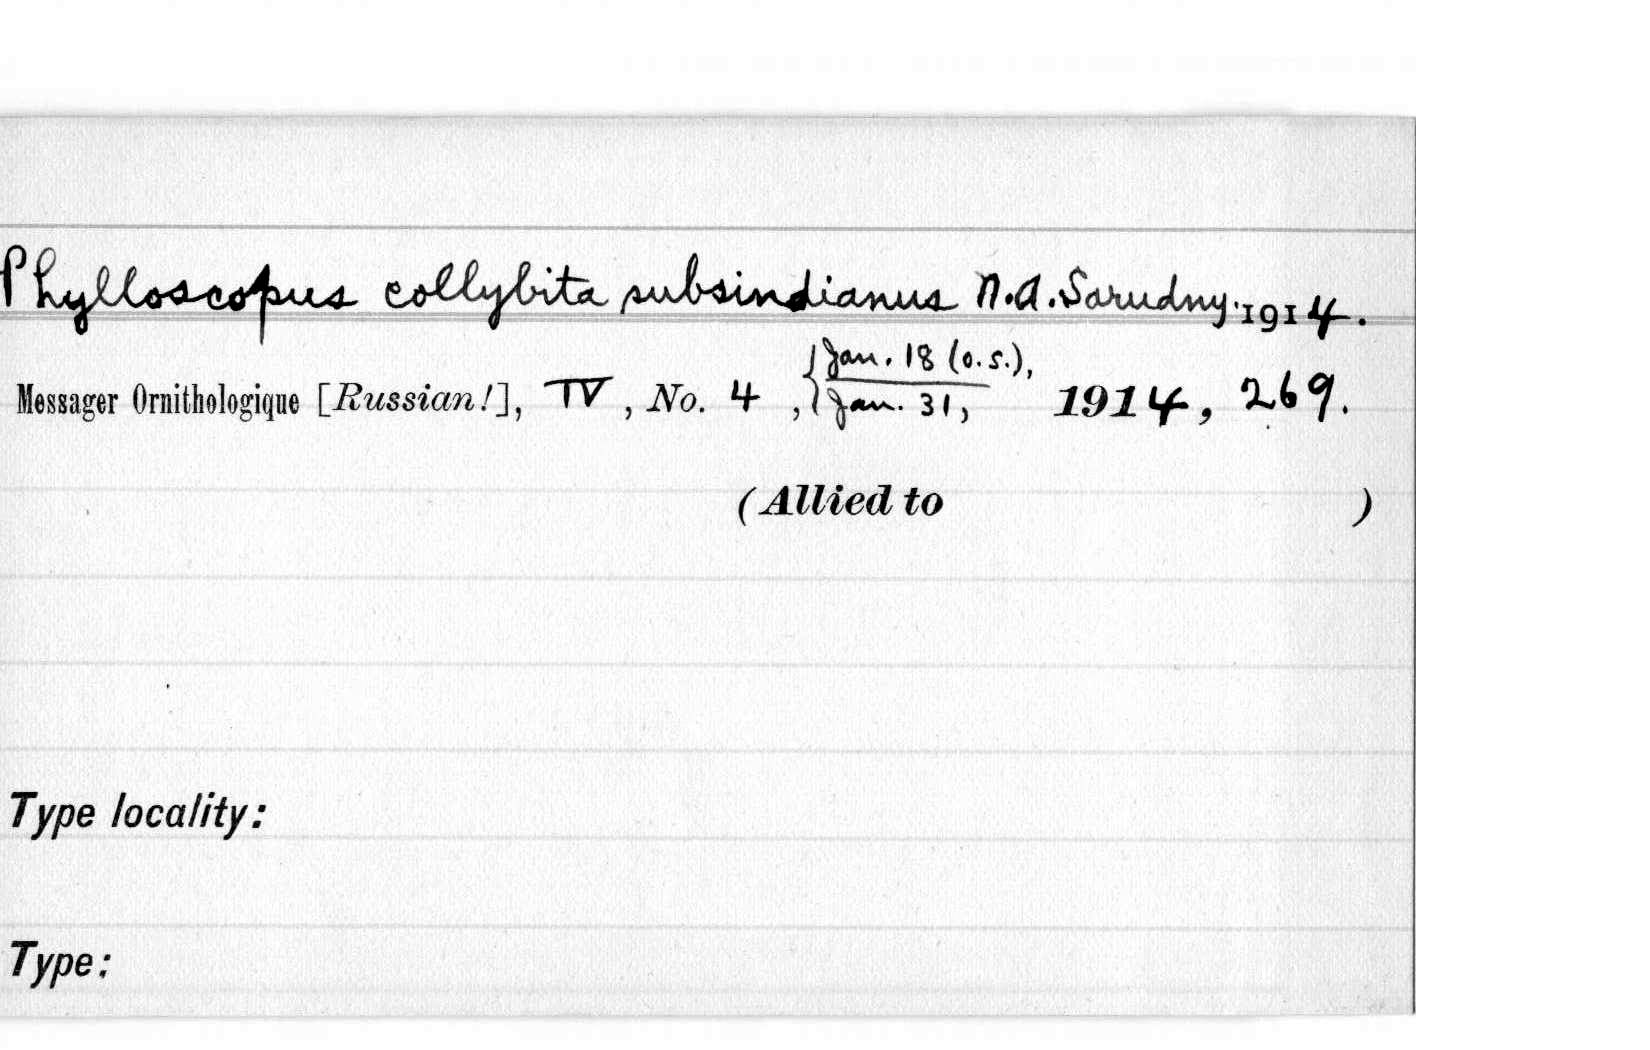 Phylloscopus collybita subsindianus N.A. Sarudny. 1914.
Messager Ornithologique [Russian!], IV, No. 4, {Jan. 18 (o.s.), Jan. 31, 1914, 269.
(Allied to )
Type locality:
Type: